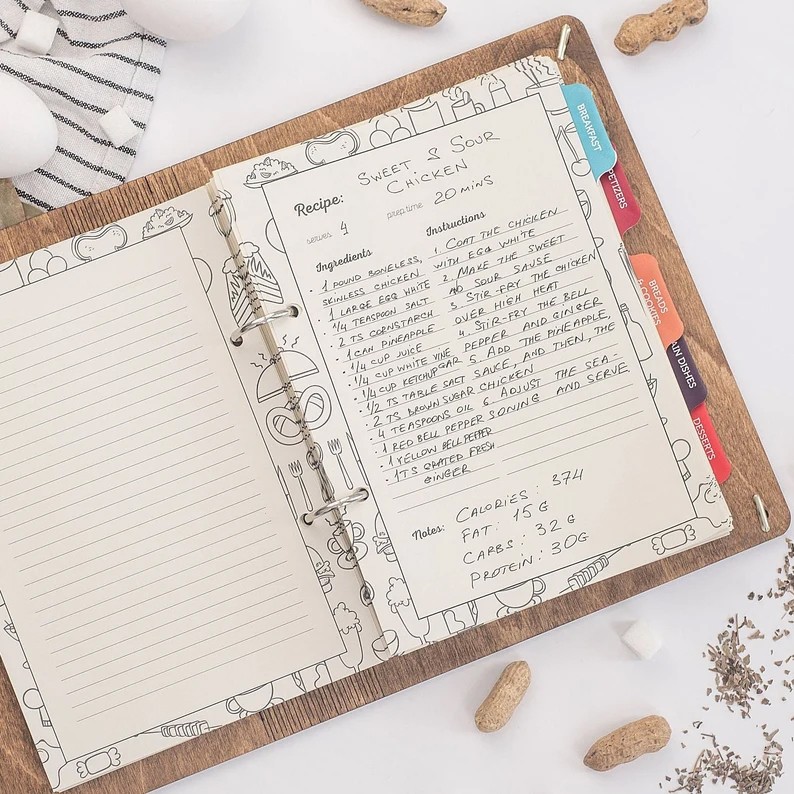 SWEET & SOUR
Recipe: CHICKEN
serves 4 prep time 20 MINS
Ingredients
• 1 POUND BONELESS,
SKINLESS CHICKEN
• 1 LARGE EGG WHITE
• 1/4 TEASPOON SALT
• 2 TS CORNSTARCH
• 1 CAN PINEAPPLE
• 1/4 CUP JUICE
• 1/4 CUP WHITE VINEGAR
• 1/4 CUP KETCHUP
• 1/2 TS TABLE SALT
• 2 TS BROWN SUGAR
• 4 TEASPOONS OIL
• 1 RED BELL PEPPER
• 1 YELLOW BELL PEPPER
• 1TS GRATED FRESH
GINGER
Instructions
1. COAT THE CHICKEN
WITH EGG WHITE
2. MAKE THE SWEET
AND SOUR SAUSE
3. STIR-FRY THE CHICKEN
OVER HIGH HEAT
4. STIR-FRY THE BELL
PEPPER AND GINGER
5. ADD THE PINEAPPLE,
SAUCE, AND THEN, THE
CHICKEN
6. ADJUST THE SEA-
SONING AND SERVE
Notes: CALORIES: 374
FAT: 15 G
CARBS: 32 G
PROTEIN: 30G
BREAKFAST
PETIZERS
BREADS
& COOKIES
AIN DISHES
DESSERTS